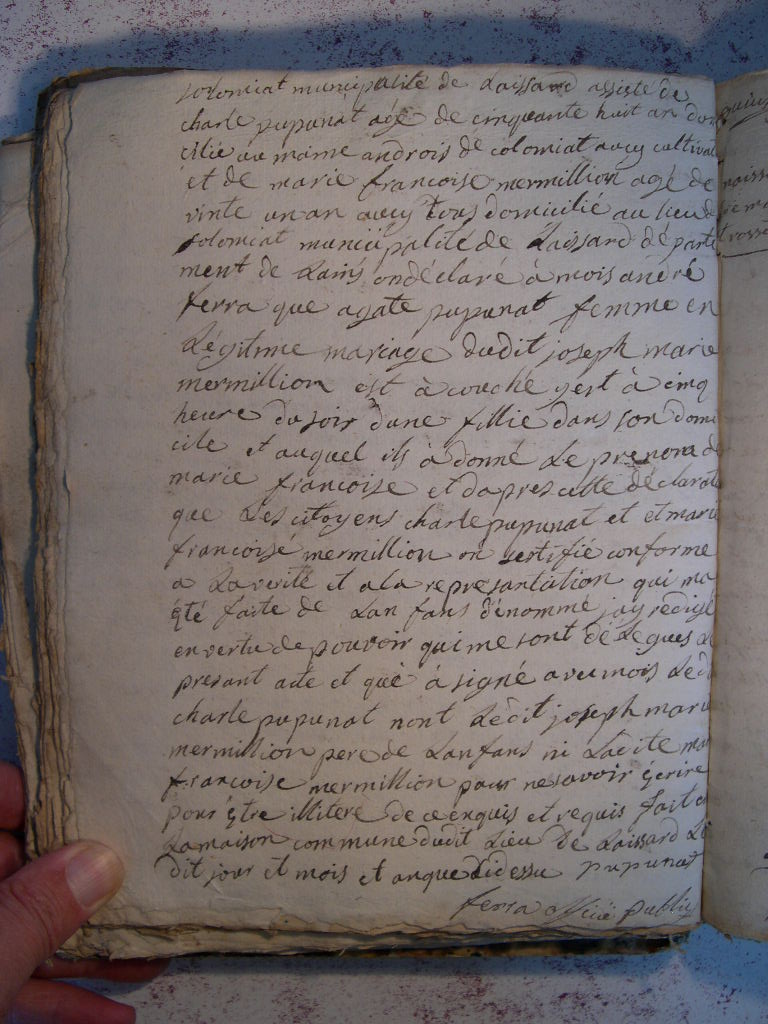 solomiat municipalité de Laissard assisté de
charle pupunat agé de cinquante huit an domi
cilié au maime androis de colomiat aucy cultiva
et de marie francoise mermillion agé de
vinte un an aucy tous domicilié au lieu de
solomiat municipalité de Laissard départe
ment de Lains on déclaré à mois andré
ferra que agate pupunat femme en
Légitime mariage dudit joseph marie
mermillion est à couché yert à cinq
heure du soir dune fillie dans son domi
cile et auquel ils à donné Le prenom de
marie francoise et dapres cette déclarat
que Les citoyens charle pupunat et et marie
francoise mermillion on certifié conforme
a La verité et a la represantation qui ma
été faite de Lan fans dénommé jay rédigé
en vertu de pouvoir qui me sont délegues Le
presant acte et que à signé avec mois Ledi
charle pupunat nont Lédit joseph marie
mermillion pere de Lanfans ni Ladite mar
francoise mermillion pour ne savoir écrire
pour être illitere de ce enquis et requis fait en
La maison commune dudit Lieu de Laissard Le
dit jour et mois et anque didessu pupunat
ferra officié publiq